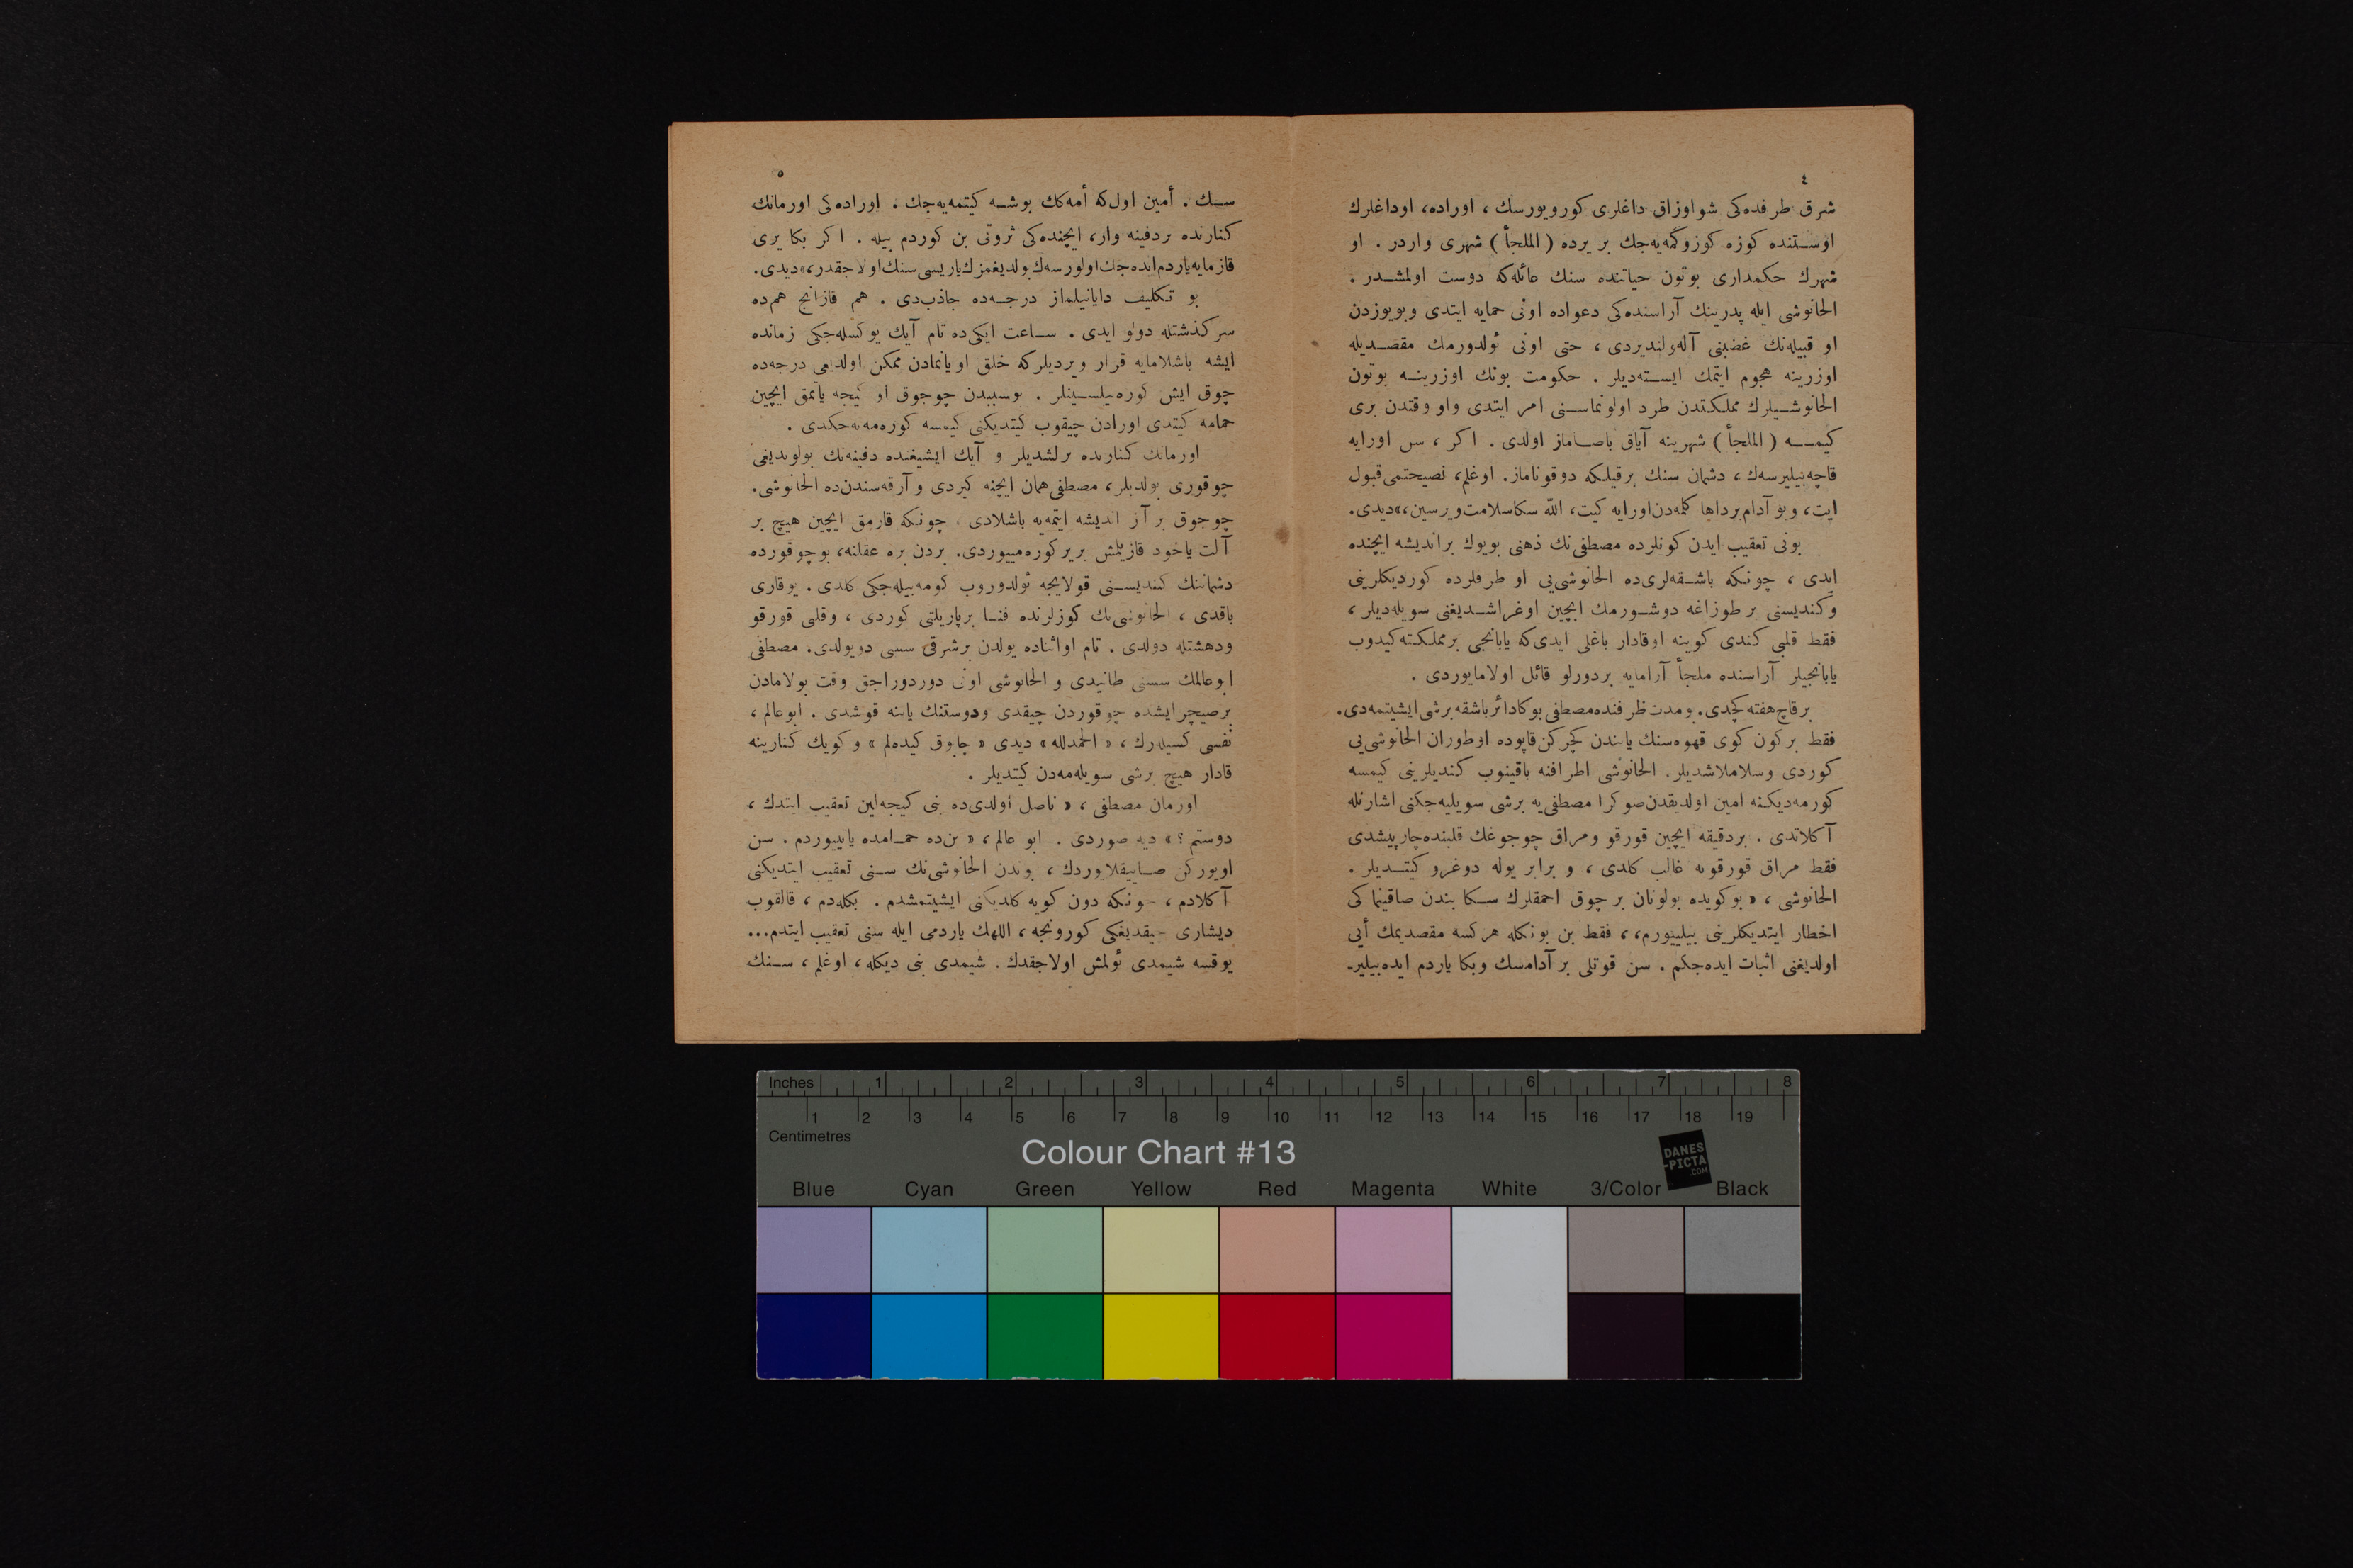 ٤
شرق طرفده‌کی شو اوزاق داغلری کورویورسك ، اوراده، اوداغلرك
اوستنده کوزه کوزوکمه‌یه‌جك بر یرده ( الملجأ ) شهری واردر . او
شهرك حکمداری بوتون حیاتنده سنك عائله‌که دوست اولمشدر .
الحانوشی ایله پدرینك آراسنده‌کی دعواده اونی حمایه ایتدی وبویوزدن
او قبیله‌نك غضبنی آله‌ولندیردی ، حتی اونی ئولدورمك مقصدیله
اوزرینه هجوم ایتمك ایسته‌دیلر . حکومت بونك اوزرینه بوتون
الحانوشیلرك مملکتدن طرد اولونماسنی امر ایتدی واو وقتدن بری
کیمسه ( الملجأ ) شهرینه آیاق باصاماز اولدی . اکر ، سن اورایه
قاچه‌بیلیرسه‌ك ، دشمان سنك برقیلکه دوقوناماز. اوغلم، نصیحتمی قبول
ایت، وبو آدام برداها کلمه‌دن اورایه کیت، الله سکا سلامت ویرسین،» دیدی.
بونی تعقیب ایدن کونلرده مصطفی‌نك ذهنی بویوك براندیشه ایچنده
ایدی ، چونکه باشقه‌لری‌ده الحانوشی‌یی او طرفلرده کوردیکلرینی
وکندیسنی بر طوزاغه دوشورمك ایچین اوغراشدیغنی سویله‌دیلر ،
فقط قلبی کندی کوینه اوقادار باغلی ایدی‌که یابانجی برمملکته کیدوب
یابانجیلر آراسنده ملجأ آرامایه بردورلو قائل اولامایوردی .
برقاچ هفته کچدی. بومدت ظرفنده مصطفی بوکا دائر باشقه برشی ایشیتمه‌دی.
فقط برکون کوی قهوه‌سنك یانندن کچرکن قاپوده اوطوران الحانوشی‌یی
کوردی وسلاملاشدیلر. الحانوشی اطرافنه باقینوب کندیلرینی کیمسه
کورمه‌دیکنه امین اولدیقدن صوکرا مصطفی‌یه برشی سویلیه‌جکنی اشارتله
آکلاتدی . بردقیقه ایچین قورقو ومراق چوجوغك قلبنده چارپیشدی
فقط مراق قورقویه غالب کلدی ، و برابر یوله دوغرو کیتدیلر .
الحانوشی ، « بوکویده بولونان بر چوق احمقلرك سکا بندن صاقینما کی
اخطار ایتدیکلرینی بیلییورم،، فقط بن بونکله هرکسه مقصدیمك أیی
اولدیغنی اثبات ایده‌جکم . سن قوتلی بر آدامسك وبکا یاردم ایده‌بیلیرـ
٥
سك . أمین اول‌که أمه‌کك بوشه کیتمه‌یه‌جك . اوراده‌کی اورمانك
کنارنده بردفینه وار، ایچنده‌کی ثروتی بن کوردم بیله . اکر بکا یری
قازمایه یاردم ایده‌جك اولورسه‌ك بولدیغمزك یاریسی سنك اولاجقدر،» دیدی.
بو تکلیف دایانیلماز درجه‌ده جاذب‌دی . هم قازانج هم‌ده
سرکذشتله دولو ایدی . ساعت ایکی‌ده تام آیك یوکسله‌جکی زمانده
ایشه باشلامایه قرار ویردیلرکه خلق اویانمادن ممکن اولدیغی درجه‌ده
چوق ایش کوره‌بیلسینلر . بوسببدن چوجوق او کیجه یاتمق ایچین
حمامه کیتدی اورادن چیقوب کیتدیکنی کیمسه کوره‌مه‌یه‌جکدی .
اورمانك کنارنده برلشدیلر و آیك ایشیغنده دفینه‌نك بولوندیغی
چوقوری بولدیلر، مصطفی همان ایچنه کیردی و آرقه‌سندن‌ده الحانوشی.
چوجوق بر آز اندیشه ایتمه‌یه باشلادی ، چونکه قازمق ایچین هیچ بر
آلت یاخود قازیلمش بریر کوره‌مییوردی. بردن بره عقلنه، بوچوقورده
دشماننك کندیسنی قولایجه ئولدوروب کومه‌بیله‌جکی کلدی . یوقاری
باقدی ، الحانوشی‌نك کوزلرنده فنا برپاریلتی کوردی ، وقلبی قورقو
ودهشتله دولدی . تام اواثناده یولدن برشرقی سسی دویولدی. مصطفی
ابوعالمك سسنی طانیدی و الحانوشی اونی دوردوراجق وقت بولامادن
برصیچرایشده چوقوردن چیقدی ودوستنك یاننه قوشدی . ابوعالم ،
نفسی کسیله‌رك ، « الحمدلله » دیدی « چابوق کیده‌لم » وکویك کنارینه
قادار هیچ برشی سویله‌مه‌دن کیتدیلر .
اورمان مصطفی ، « ناصل اولدی‌ده بنی کیجه‌لین تعقیب ایتدك ،
دوستم ؟ » دیه صوردی . ابو عالم ، « بن‌ده حمامده یاتییوردم . سن
اویورکن صاییقلایوردك ، بوندن الحانوشی‌نك سنی تعقیب ایتدیکنی
آکلادم ، چونکه دون کویه کلدیکنی ایشیتمشدم . بکله‌دم ، قالقوب
دیشاری چیقدیغکی کورونجه ، اللهك یاردمی ایله سنی تعقیب ایتدم...
یوقسه شیمدی ئولمش اولاجقدك . شیمدی بنی دیکله ، اوغلم ، سنك
Inches 1 2 3 4 5 6 7 8
1 2 3 4 5 6 7 8 9 10 11 12 13 14 15 16 17 18 19
Centimetres
Colour Chart #13
DANES
-PICTA
.COM
Blue Cyan Green Yellow Red Magenta White 3/Color Black